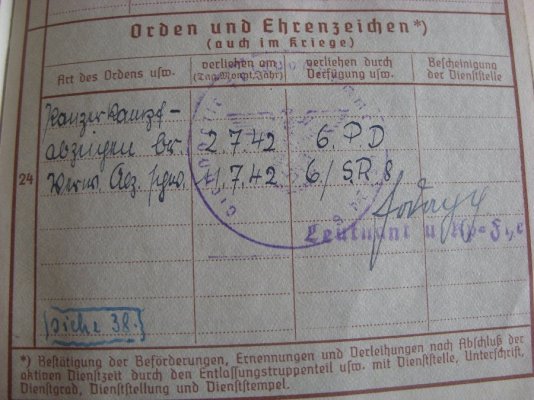 Orden und Ehrenzeichen*)
(auch im Kriege)
Art des Ordens usw.
verliehen am
(Tag, Monat, Jahr)
verliehen durch
Verfügung usw.
Bescheinigung
der Dienststelle
Panzerkampf-
abzeichen br. 2.7.42 6. PD
24 Verw. Abz. schw. 11.7.42 6/ SR 8
Leutnant u.
(siehe 38.)
*) Bestätigung der Beförderungen, Ernennungen und Verleihungen nach Abschluß der
aktiven Dienstzeit durch den Entlassungstruppenteil usw. mit Dienststelle, Unterschrift,
Dienstgrad, Dienststellung und Dienststempel.